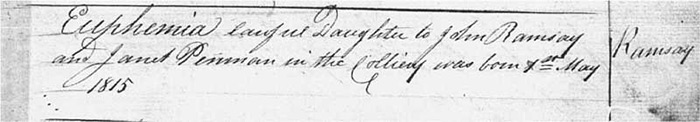 Euphemia lawful Daughter to John Ramsay
and Janet Penman in the Colliery was born 1st May
1815
Ramsay